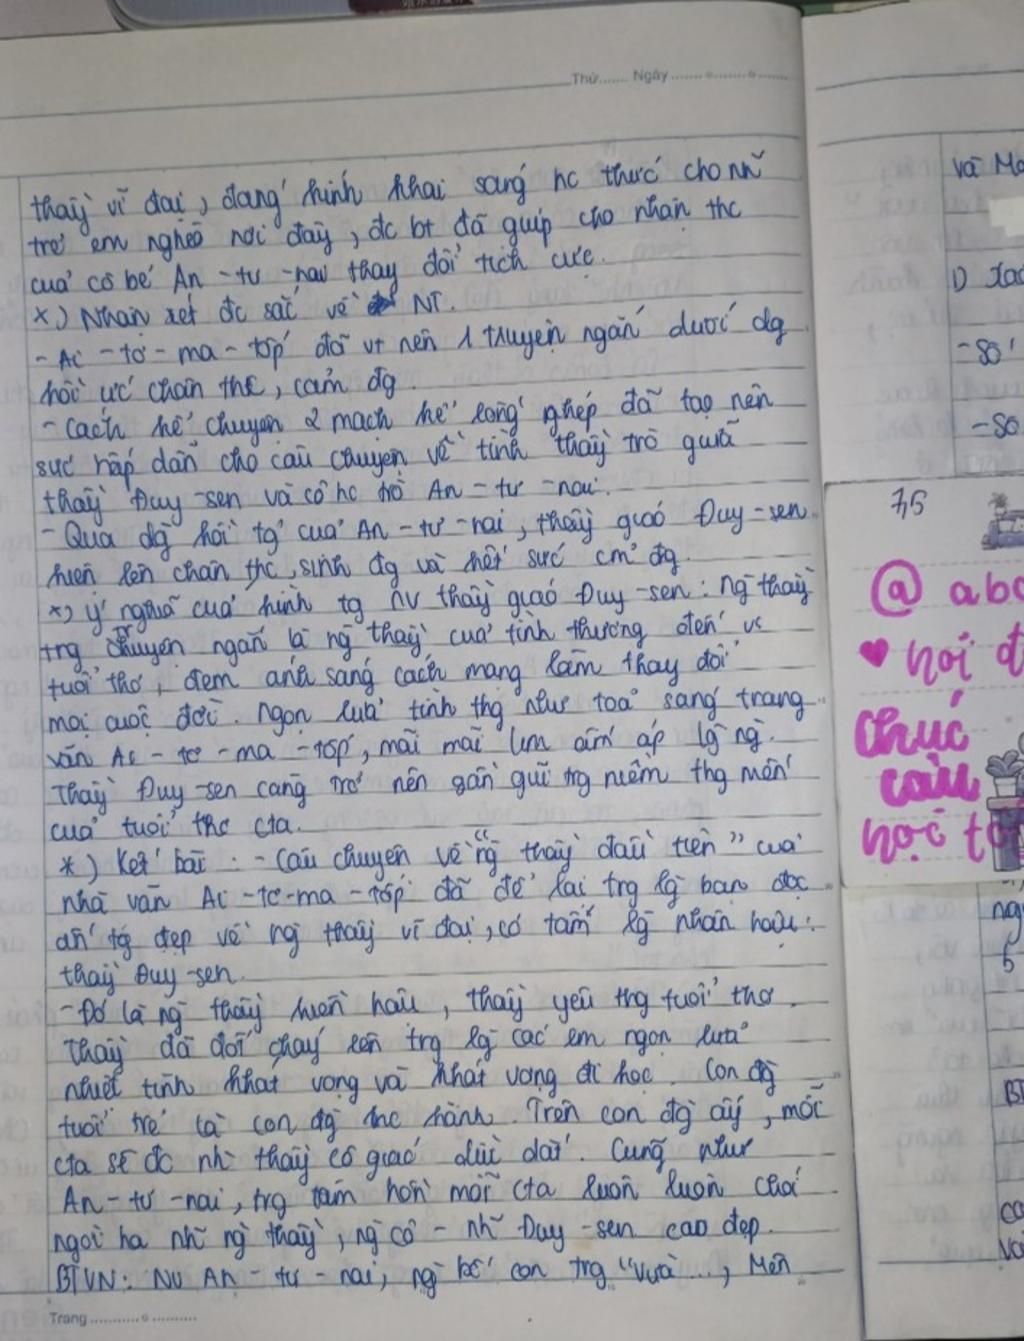 Thứ....... Ngày........o........o.......
thầy vĩ đại, đang hình khai sáng hc thức cho nh~
trẻ em nghèo nơi đây, đc bt đã giúp cho nhận thc
của cô bé An - tư - nai thay đổi tích cực.
*) Nhận xét đc sắc về NT.
- Ai - tơ - ma - tốp đã vt nên 1 truyện ngắn dưới dg
hồi ức chân thc, cảm đg
- Cách kể chuyện 2 mạch kể lồng ghép đã tạo nên
sức hấp dẫn cho câu chuyện về tình thầy trò giữa
thầy Đuy - sen và cô hc trò An - tư - nai.
- Qua dg hồi tg của An - tư - nai, thầy giáo Đuy - sen
hiện lên chân thc, sinh đg và hết sức cm đg.
*) Ý nghĩa của hình tg nv thầy giáo Đuy - sen: Ng thầy
trg chuyện ngắn là ng thầy của tình thương đến vs
tuổi thơ, đem ánh sáng cách mạng làm thay đổi
mọi cuộc đời. Ngọn lửa tình thg như toả sáng trang
văn Ai - tơ - ma - tốp, mãi mãi lm ấm áp lg ng.
Thầy Đuy - sen càng trở nên gần gũi trg niềm thg mến
của tuổi thơ cta.
*) Kết bài: - Câu chuyện về "ng thầy đầu tiên" của
nhà văn Ai - tơ - ma - tốp đã để lại trg lg bạn đọc
ấn tg đẹp về ng thầy vĩ đại, có tấm lg nhân hậu:
thầy Đuy - sen.
- Đó là ng thầy hiền hậu, thầy yêu thg tuổi thơ.
Thầy đã đốt cháy lên trg lg các em ngọn lửa
nhiệt tình khát vọng và khát vọng đi học. Con đg
tuổi trẻ là con đg hc hành. Trên con đg ấy, mỗi
cta sẽ đc nh~ thầy cô giáo dìu dắt. Cũng như
An - tư - nai, trg tâm hồn mỗi cta luôn luôn chói
ngời h/a nh~ ng thầy, ng cô - nh~ Đuy - sen cao đẹp.
BTVN: NV An - tư - nai, ng bố con trg "Vừa ...", Mên
Trang............o............
và Mo
1)
- Số
- Số
7/5
@ abc
♥ nơi đ
Chúc
cậu
học tố